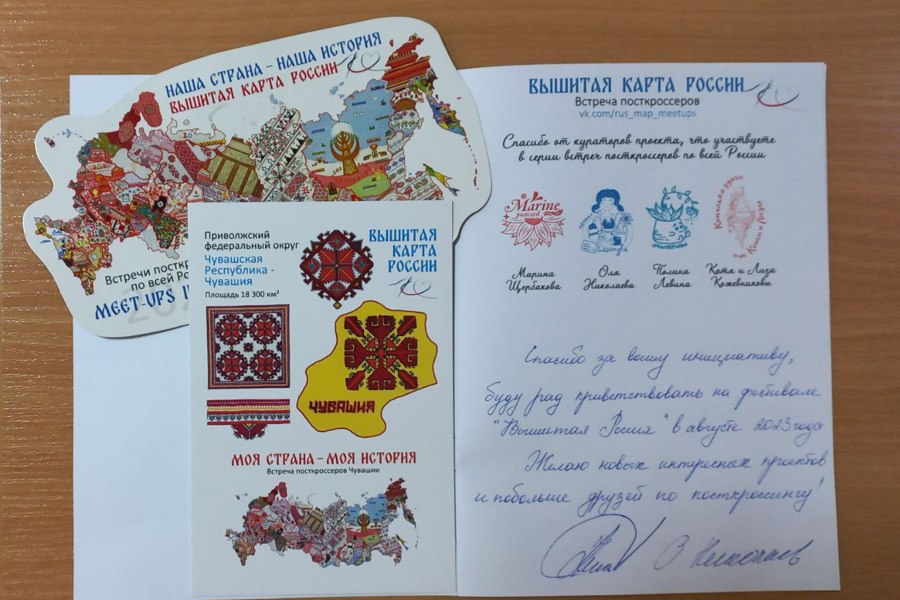 НАША СТРАНА – НАША ИСТОРИЯ
ВЫШИТАЯ КАРТА РОССИИ
Встречи
по всей
MEET-UPS
Приволжский
федеральный округ
Чувашская
Республика -
Чувашия
Площадь 18 300 км²
ВЫШИТАЯ
КАРТА
РОССИИ
ЧУВАШИЯ
МОЯ СТРАНА – МОЯ ИСТОРИЯ
Встреча посткроссеров Чувашии
ВЫШИТАЯ КАРТА РОССИИ
Встреча посткроссеров
vk.com/rus_map_meetups
Спасибо от кураторов проекта, что участвуете
в серии встреч посткроссеров по всей России
Marine
postcard
Марина
Щербакова
Ола
Николаева
Полина
Левина
Ката и Лиза
Кожевниковы
Спасибо за вашу инициативу,
буду рад приветствовать на фестивале
"Вышитая Россия" в августе 2023 года
Желаю новых интересных проектов
и побольше друзей по посткроссингу!